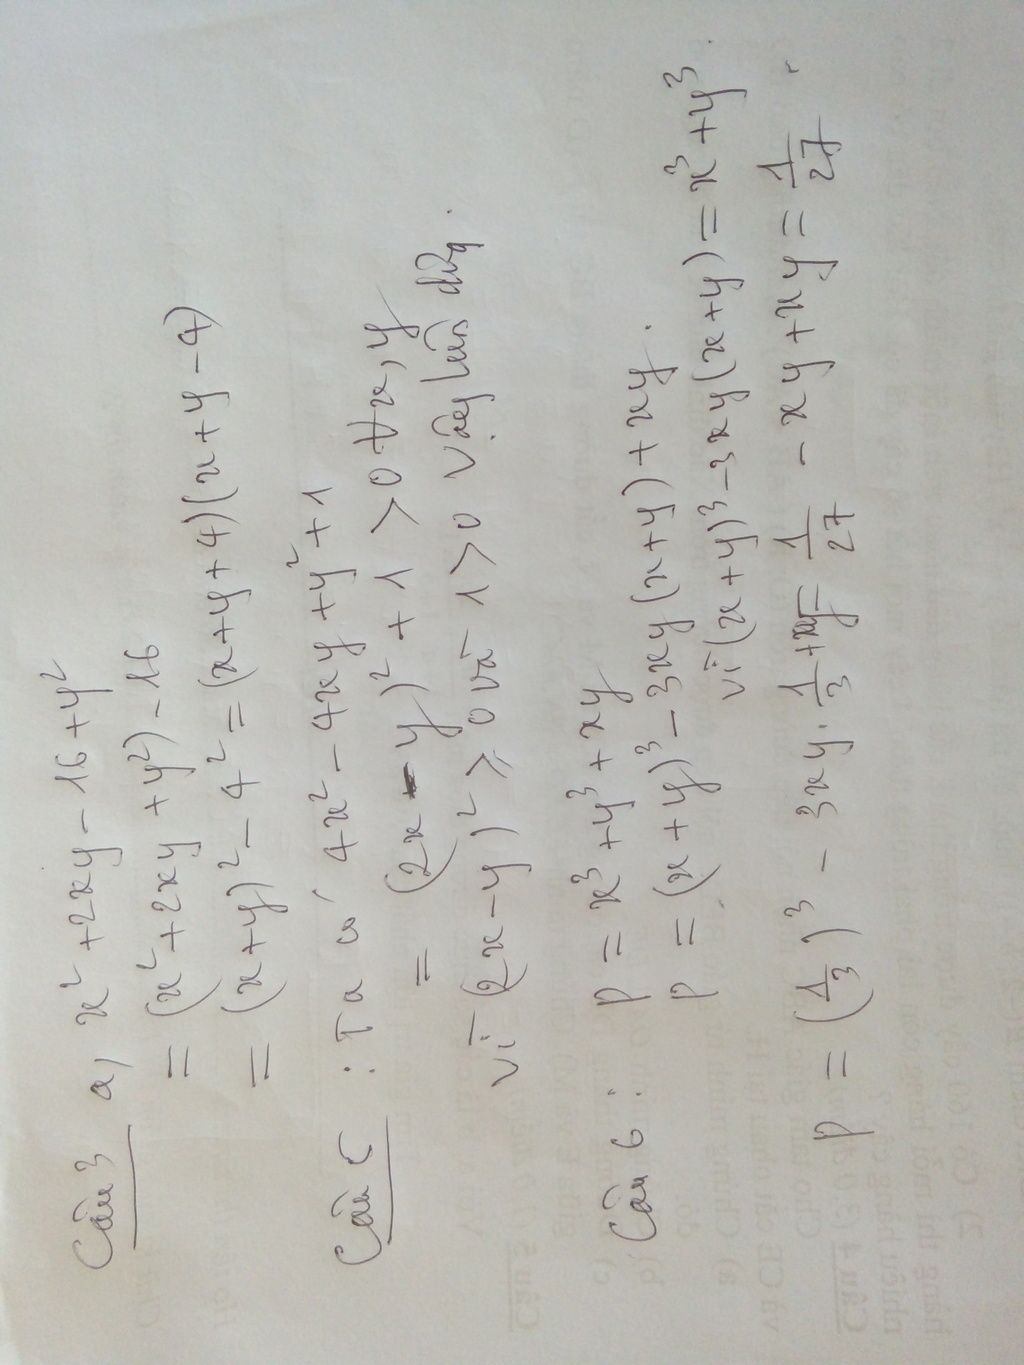 Câu 3 a, x² + 2xy - 16 + y²
= (x² + 2xy + y²) - 16
= (x + y)² - 4² = (x + y + 4)(x + y - 4)
Câu C : Ta có 4x² - 4xy + y² + 1
= (2x - y)² + 1 > 0 ∀x, y
Vì (2x - y)² ≥ 0 và 1 > 0 Vậy luôn đúng.
Câu 6 : P = x³ + y³ + xy
P = (x + y)³ - 3xy(x + y) + xy.
vì (x + y)³ - 3xy(x + y) = x³ + y³.
P = (1/3)³ - 3xy.1/3 + xy = 1/27 - xy + xy = 1/27.